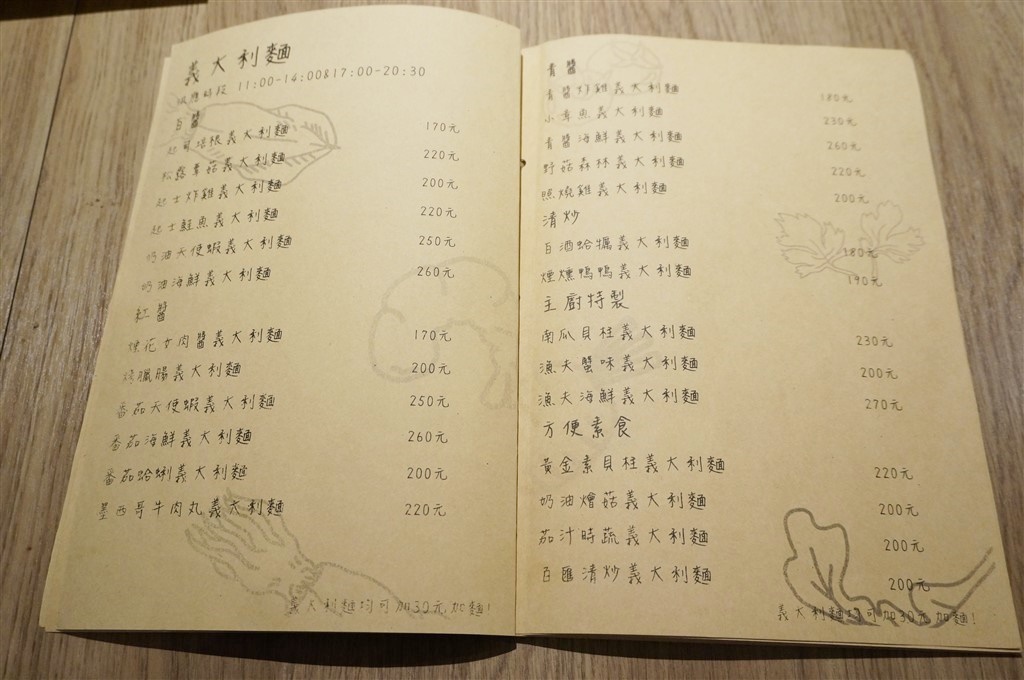 義大利麵
供應時段 11:00-14:00&17:00-20:30
白醬
起司培根義大利麵 170元
松露蕈菇義大利麵 220元
起士炸雞義大利麵 200元
起士鮭魚義大利麵 220元
奶油天使蝦義大利麵 250元
奶油海鮮義大利麵 260元
紅醬
煙花女肉醬義大利麵 170元
烤臘腸義大利麵 200元
番茄天使蝦義大利麵 250元
番茄海鮮義大利麵 260元
番茄蛤蜊義大利麵 200元
墨西哥牛肉丸義大利麵 220元
義大利麵均可加30元加麵!
青醬
青醬炸雞義大利麵 180元
小章魚義大利麵 230元
青醬海鮮義大利麵 260元
野菇森林義大利麵 220元
照燒雞義大利麵 200元
清炒
白酒蛤蠣義大利麵 180元
煙燻鴨鴨義大利麵 190元
主廚特製
南瓜貝柱義大利麵 230元
漁夫蟹味義大利麵 200元
漁夫海鮮義大利麵 270元
方便素食
黃金素貝柱義大利麵 220元
奶油燴菇義大利麵 200元
茄汁時蔬義大利麵 200元
百匯清炒義大利麵 200元
義大利麵均可加30元加麵!